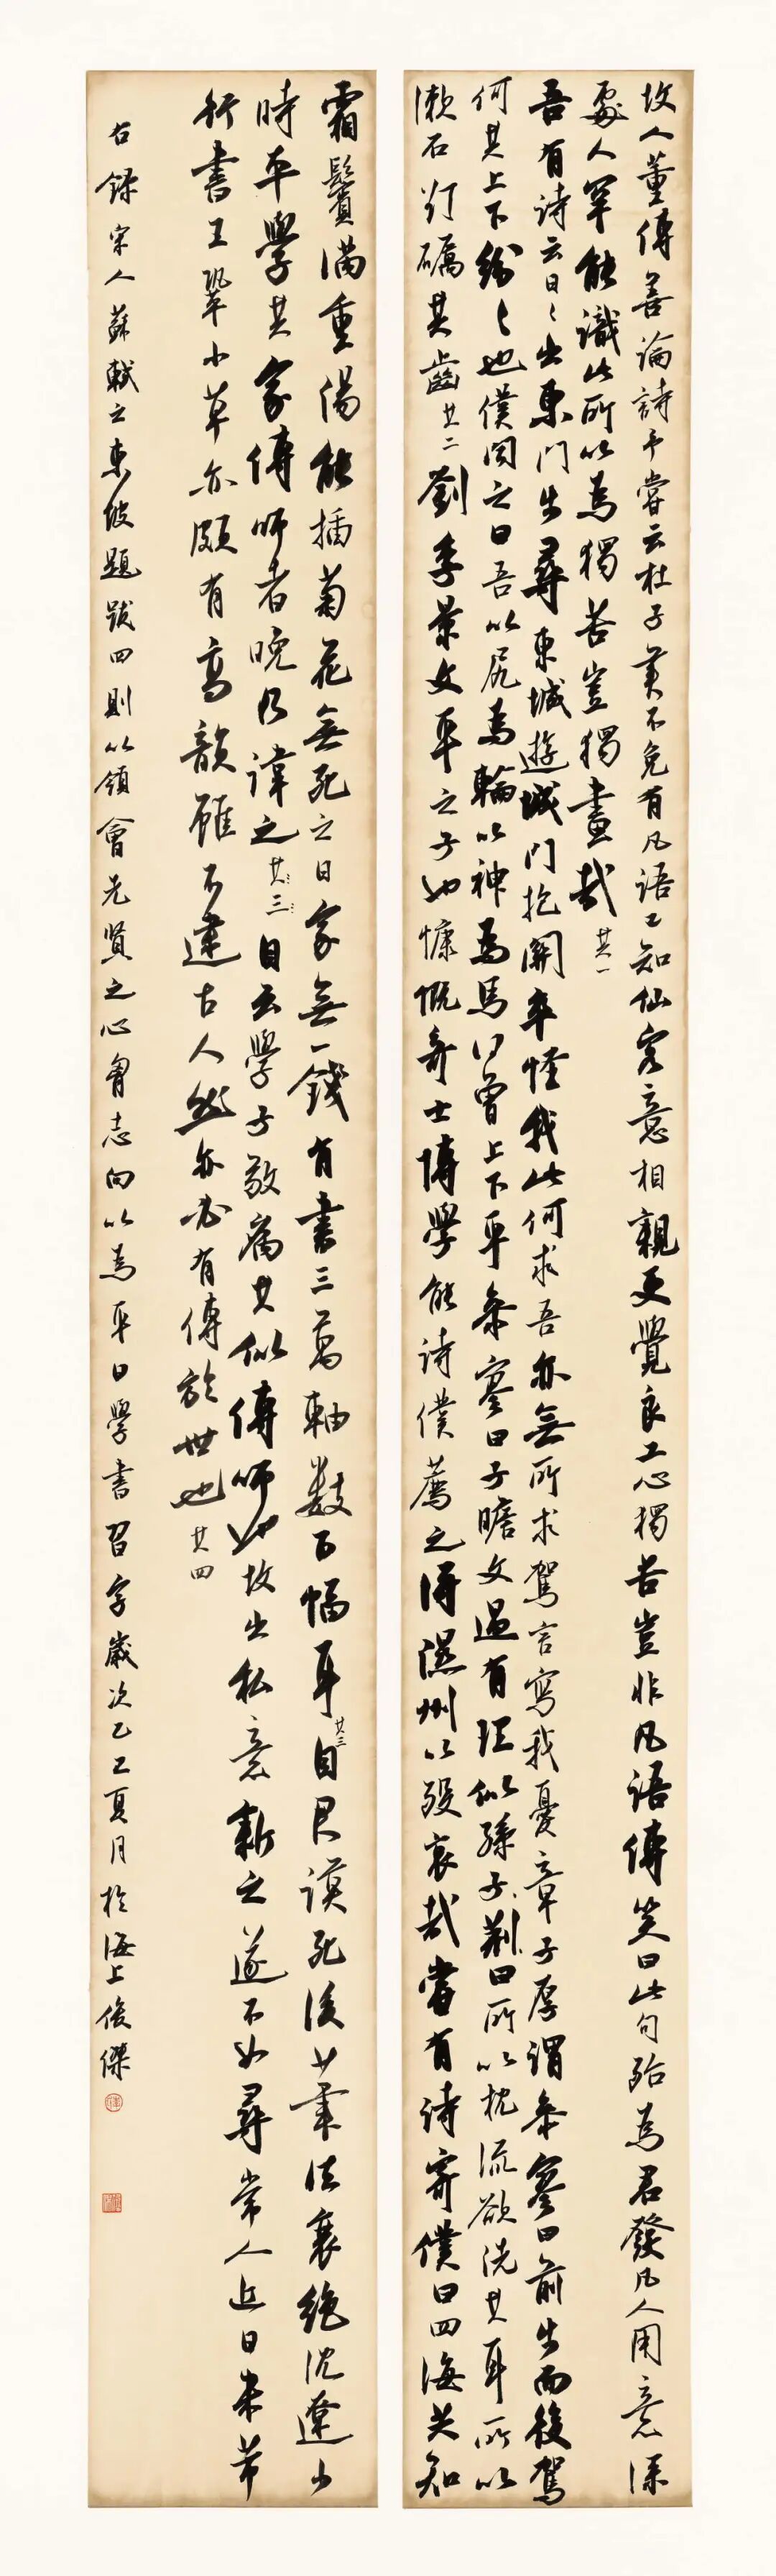 故人董傳善論詩予嘗云杜子美不免有凡語已知仙客意相親更覺良工心獨苦豈非凡語傳笑曰此句殆為君發凡人用意深
處人罕能識此所以為獨苦豈獨畫哉其一
吾有詩云日々出東門步尋東城遊城門抱關卒怪我此何求吾亦無所求駕言寫我憂章子厚謂參寥曰前步而後駕
何其上下紛々也僕聞之曰吾以尻為輪以神為馬何曾上下乎參寥曰子瞻文過有理似孫子荊曰所以枕流欲洗其耳所以
漱石欲礪其齒其二劉季景文平之子也慷慨奇士博學能詩僕薦之得隰州以歿哀哉嘗有詩寄僕曰四海共知
霜鬢滿重陽能插菊花無死之日家無一錢有書三萬軸數百幅耳其三自君謨死後筆法衰絕沈遼少
時本學其家傳師者晚乃諱之其三自云學子敬病其似傳師也故出私意新之遂不如尋常人近日米芾
行書王鞏小草亦頗有高韻雖不逮古人然亦必有傳於世也其四
右錄宋人蘇軾之東坡題跋四則以領會先賢之心胸志向以為平日學書習字歲次乙巳夏月於海上俊傑